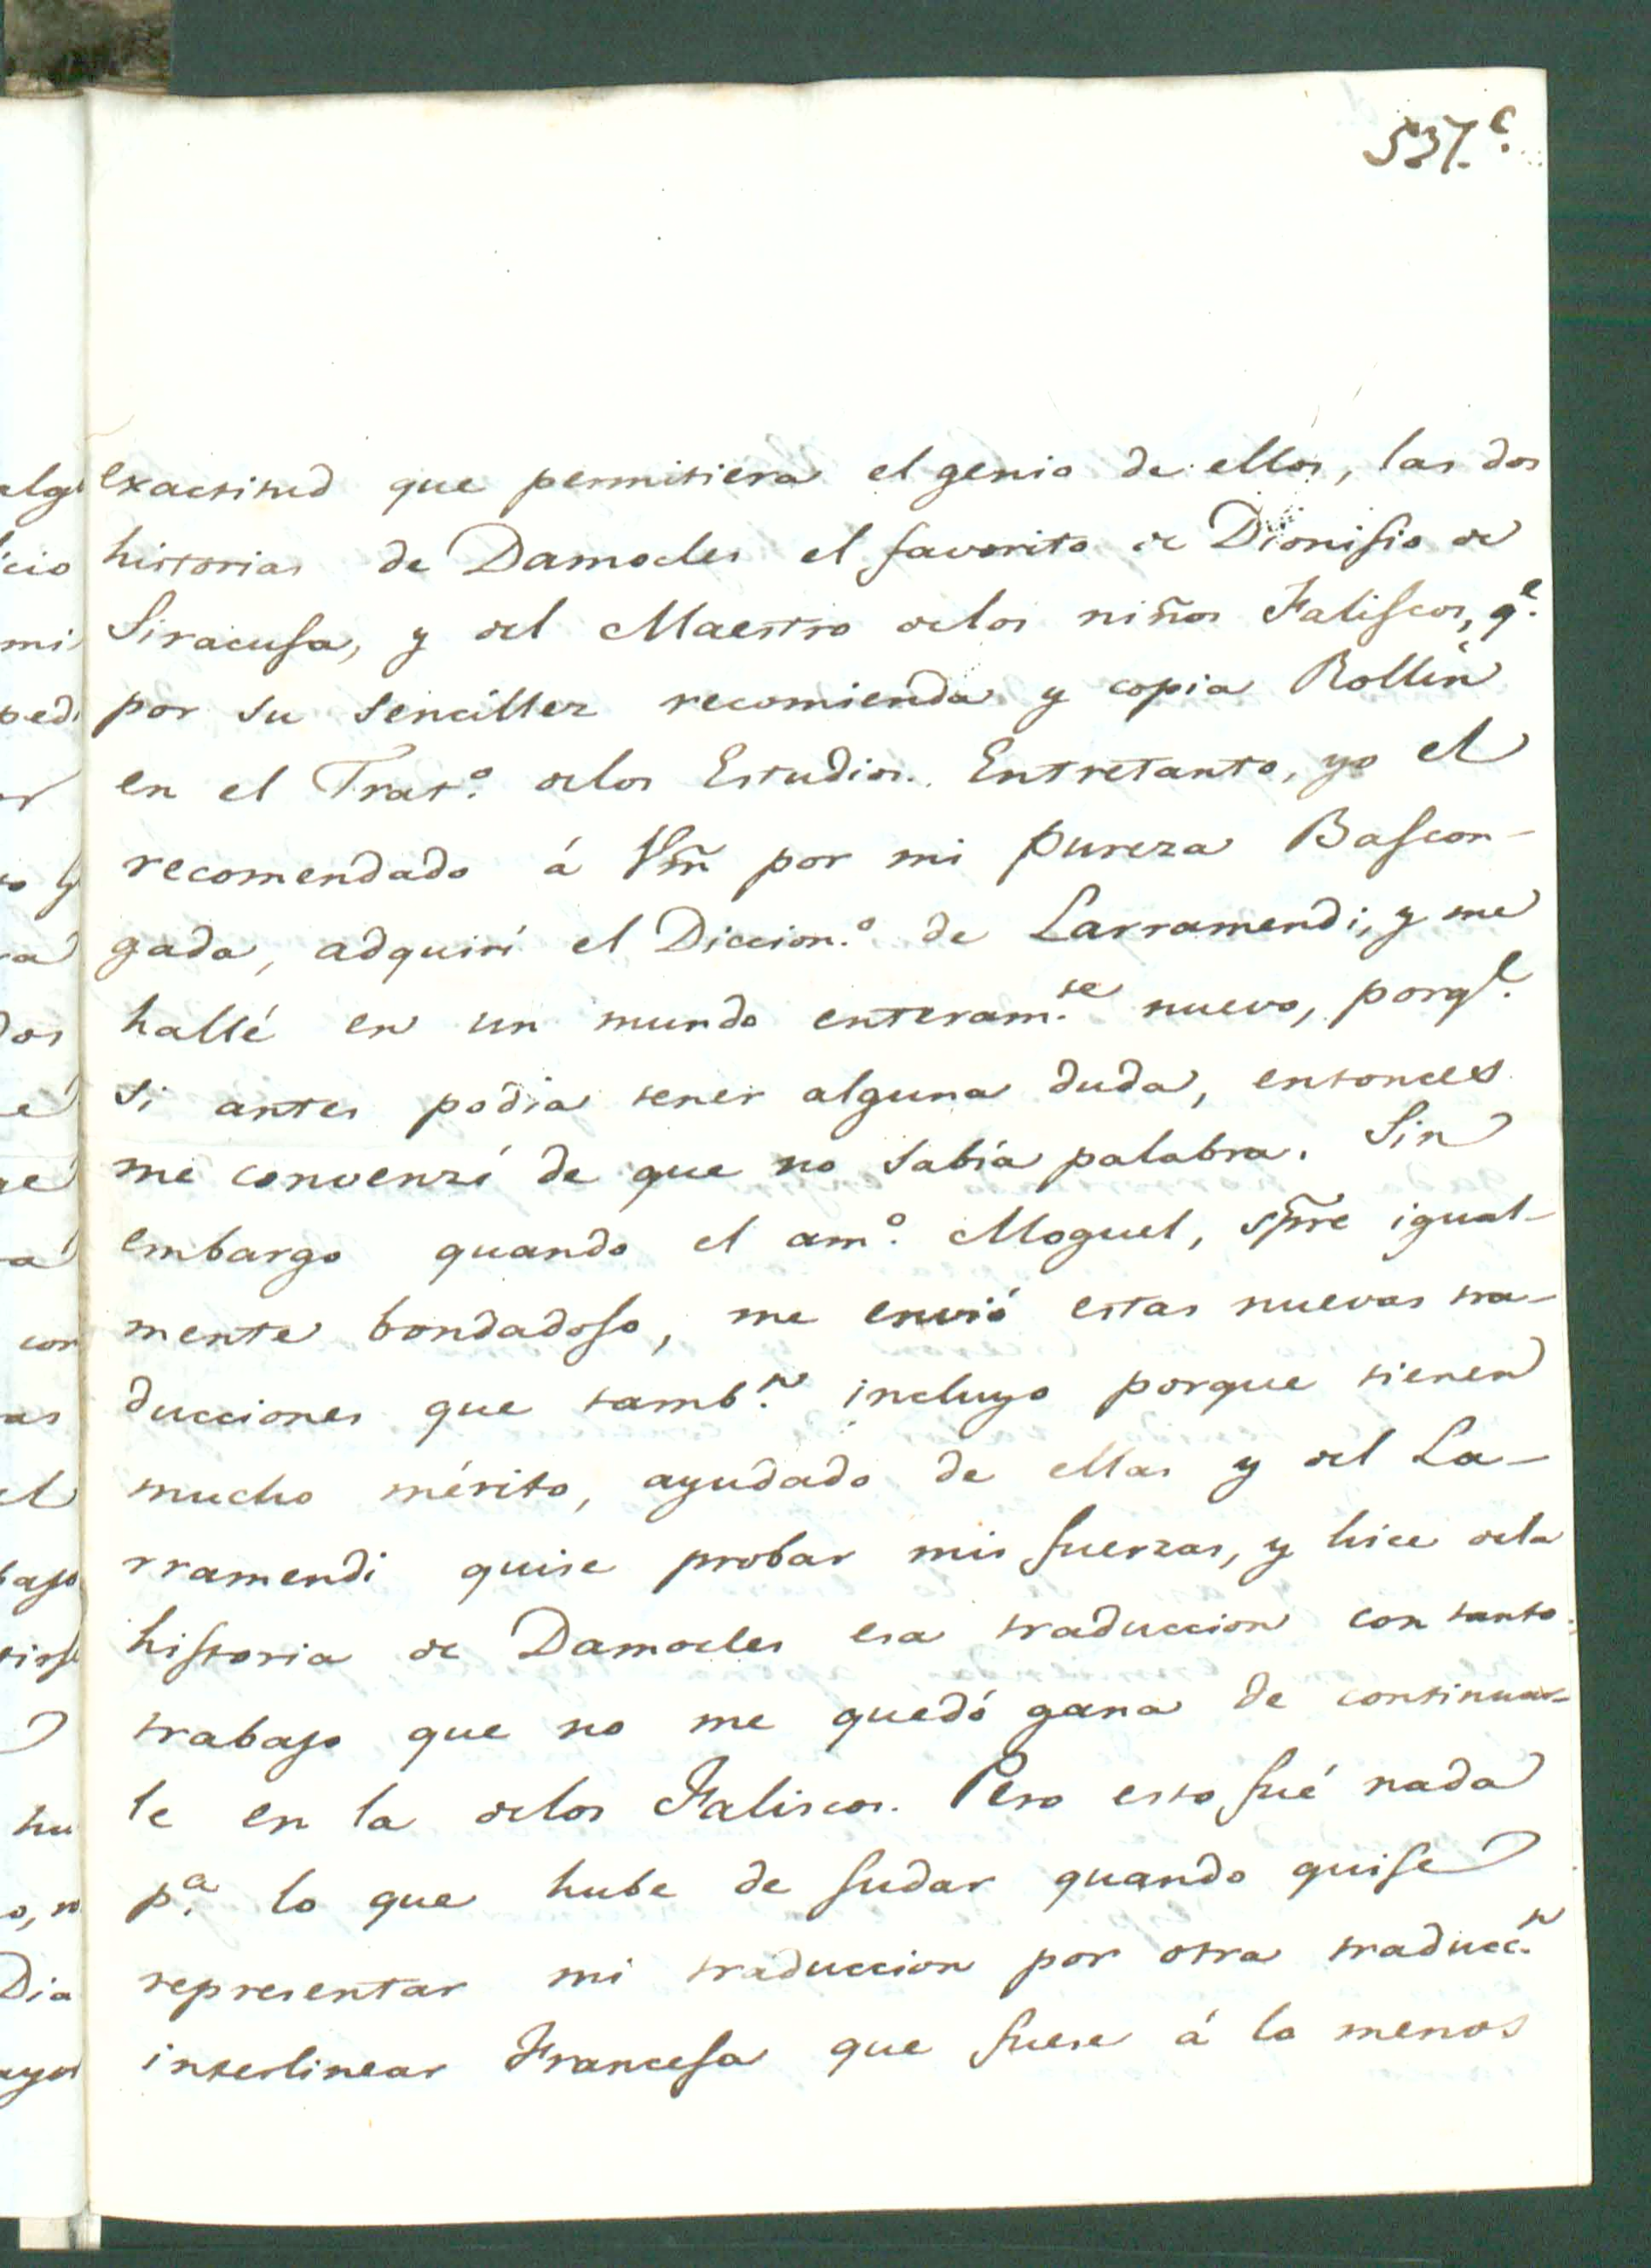 537.c
exactitud que permitiera el genio de ellos, las dos
historias de Damocles el favorito de Dionisio de
Siracusa, y del Maestro de los niños Faliscos, q.e
por su sencillez recomienda y copia Rollin
en el Trat.o de los Estudios. Entretanto, yo el
recomendado á Vm̃ por mi pureza Bascon-
gada, adquirí el Diccion.o de Larramendi, y me
hallé en un mundo enteram.te nuevo, porq.e
si antes podia tener alguna duda, entonces
me convenzí de que no sabía palabra. Sin
embargo quando el am.o Moguel, sp̃re igual-
mente bondadoso, me envió estas nuevas tra-
ducciones que tamb.n incluyo porque tienen
mucho mérito, ayudado de ellas y del La-
rramendi quise probar mis fuerzas, y hice de la
historia de Damocles esa traduccion con tanto
trabajo que no me quedó gana de continuar-
le en la de los Faliscos. Pero esto fué nada
p.a lo que hube de sudar quando quise
representar mi traduccion por otra traducc.n
interlinear Francesa que fuese á lo menos